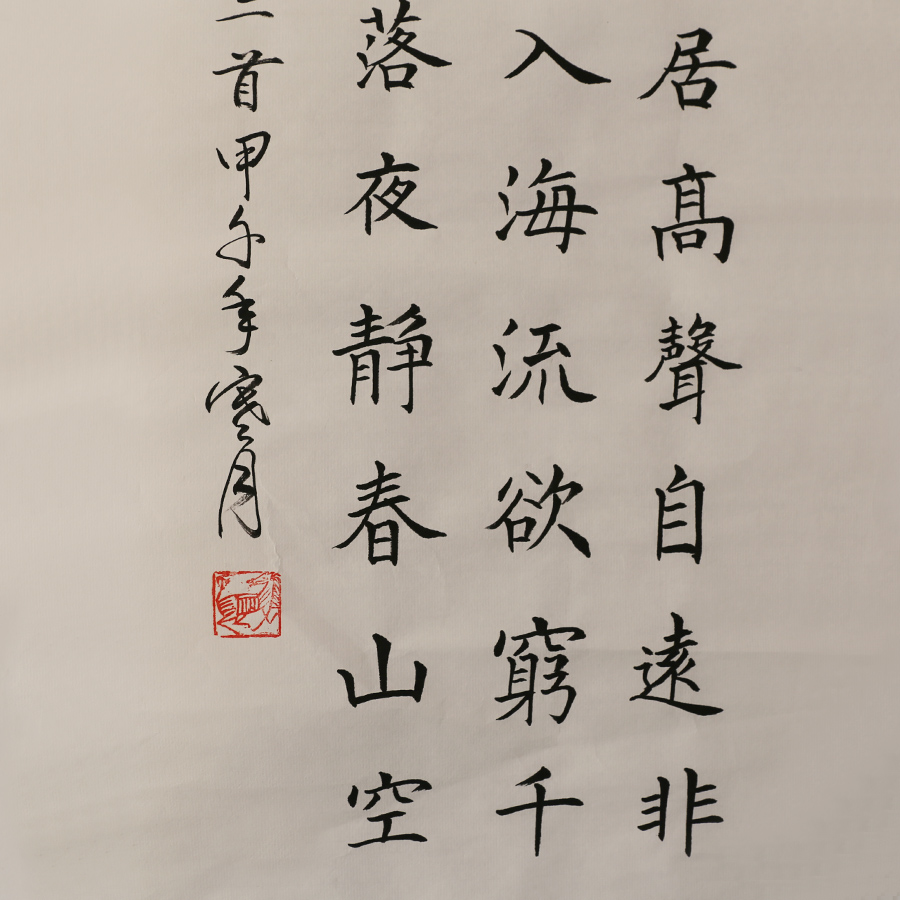 居高聲自遠非
入海流欲窮千
落夜靜春山空
二首甲午年寒月